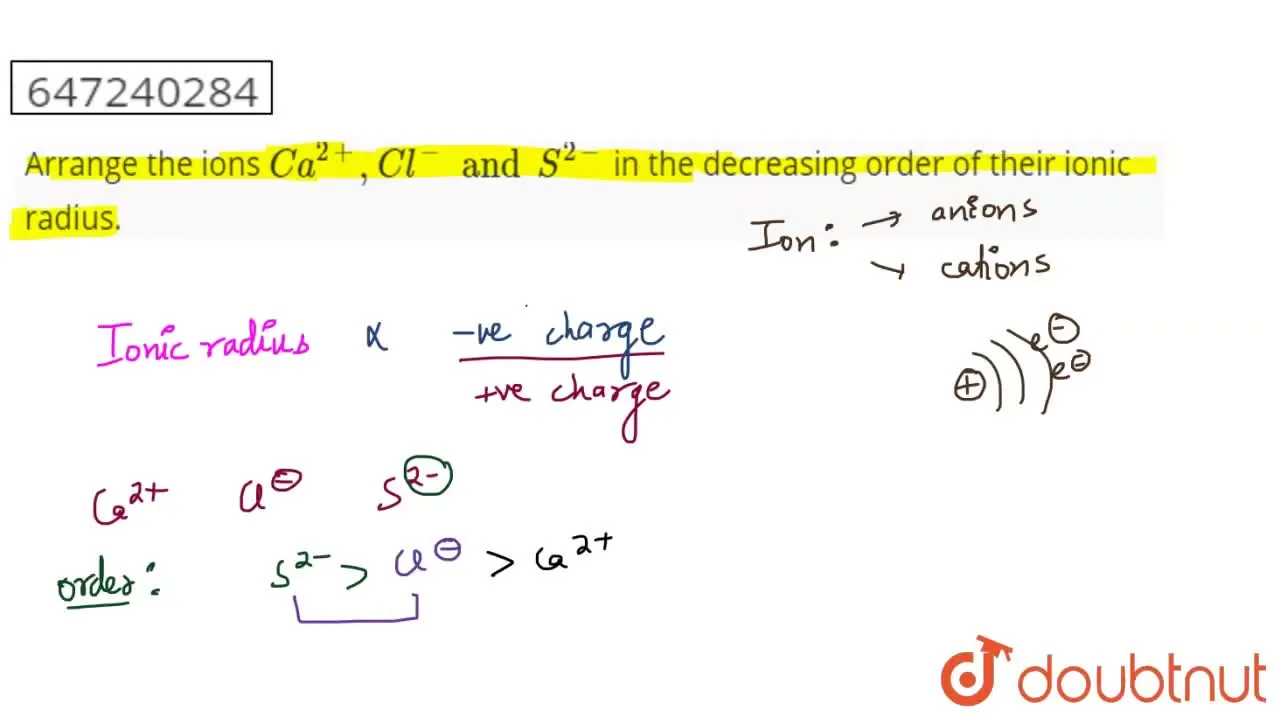 647240284
Arrange the ions Ca²⁺, Cl⁻ and S²⁻ in the decreasing order of their ionic
radius.
Ion: → anions
→ cations
Ionic radius ∝ -ve charge
+ve charge
⊕ e⊖
e⊖
Ca²⁺ Cl⊖ S²⁻
order: S²⁻ > Cl⊖ > Ca²⁺
doubtnut